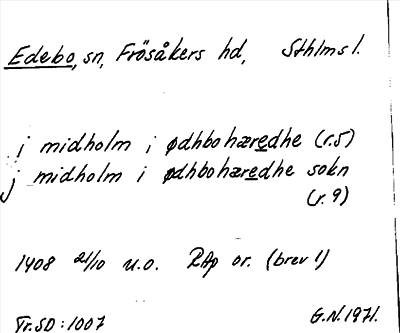 Edebo, sn, Frösåkers hd, Sthlms l.
j midholm i ødhbohæredhe (r.5)
j midholm i ødhbohæredhe sokn
(r. 9)
1408 21/10 u.o. RAp or. (brev 1)
Tr. SD: 1007 G.N. 1971.